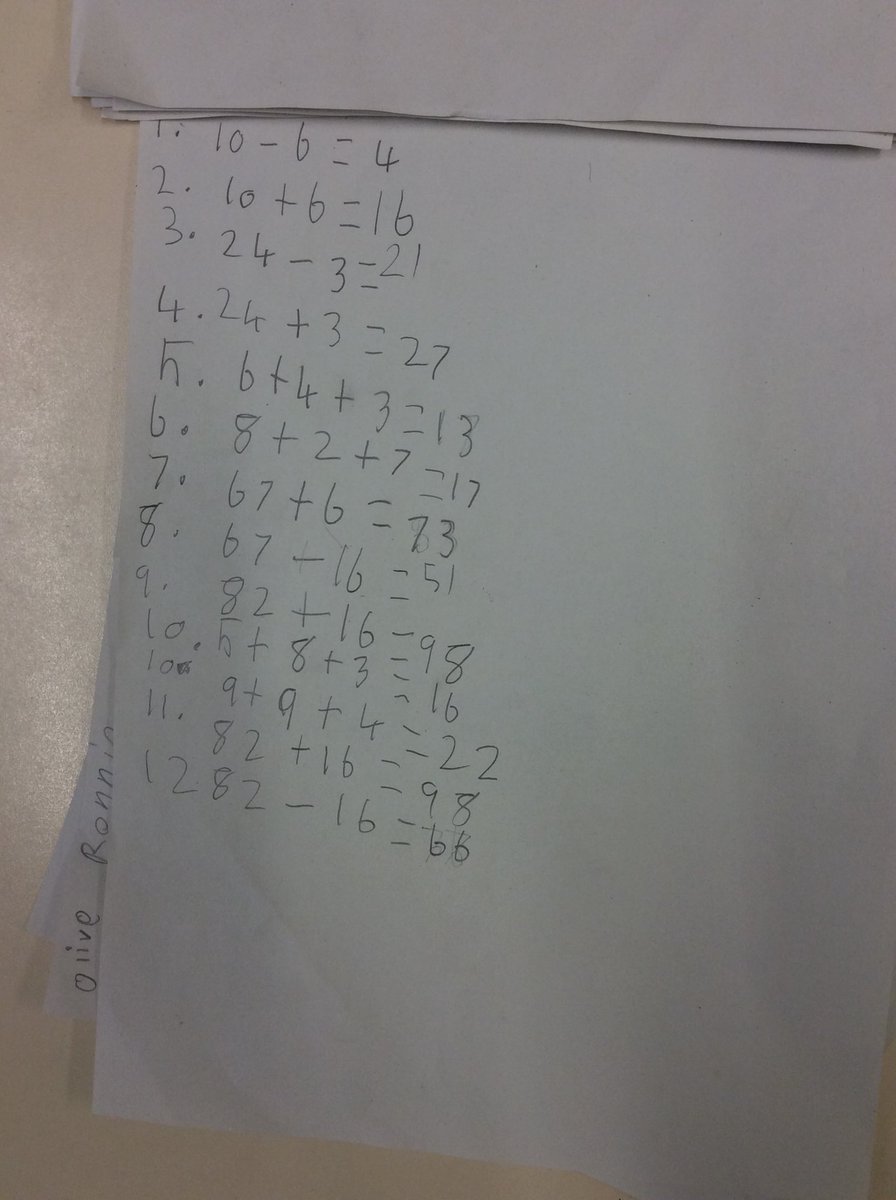 1. 10 - 6 = 4
2. 10 + 6 = 16
3. 24 - 3 = 21
4. 24 + 3 = 27
5. 6 + 4 + 3 = 13
6. 8 + 2 + 7 = 17
7. 67 + 6 = 73
8. 67 - 16 = 51
9. 82 + 16 = 98
10. 5 + 8 + 3 = 16
10. 9 + 9 + 4 = 22
11. 82 + 16 = 98
12 82 - 16 = 66
Olive Ronnin